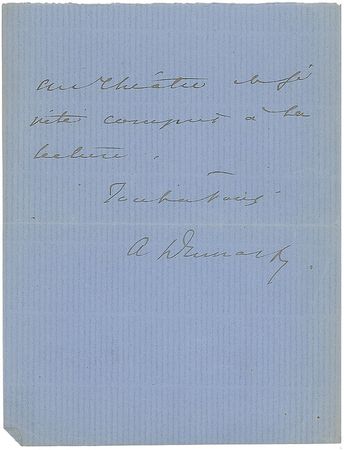 au théâtre et si
vite compris à la
lecture.
Tout à vous
A Dumas f.